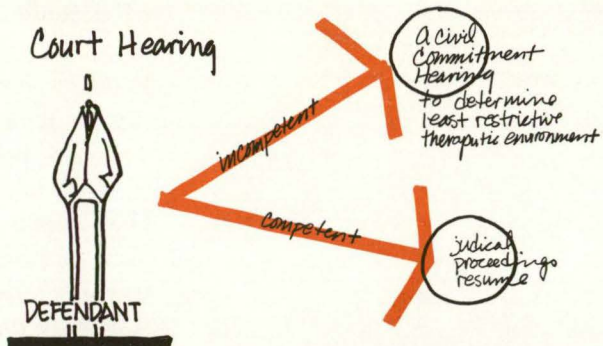 Court Hearing
DEFENDANT
incompetent
A civil
Commitment
Hearing
to determine
least restrictive
theraputic environment
competent
judical
proceedings
resume